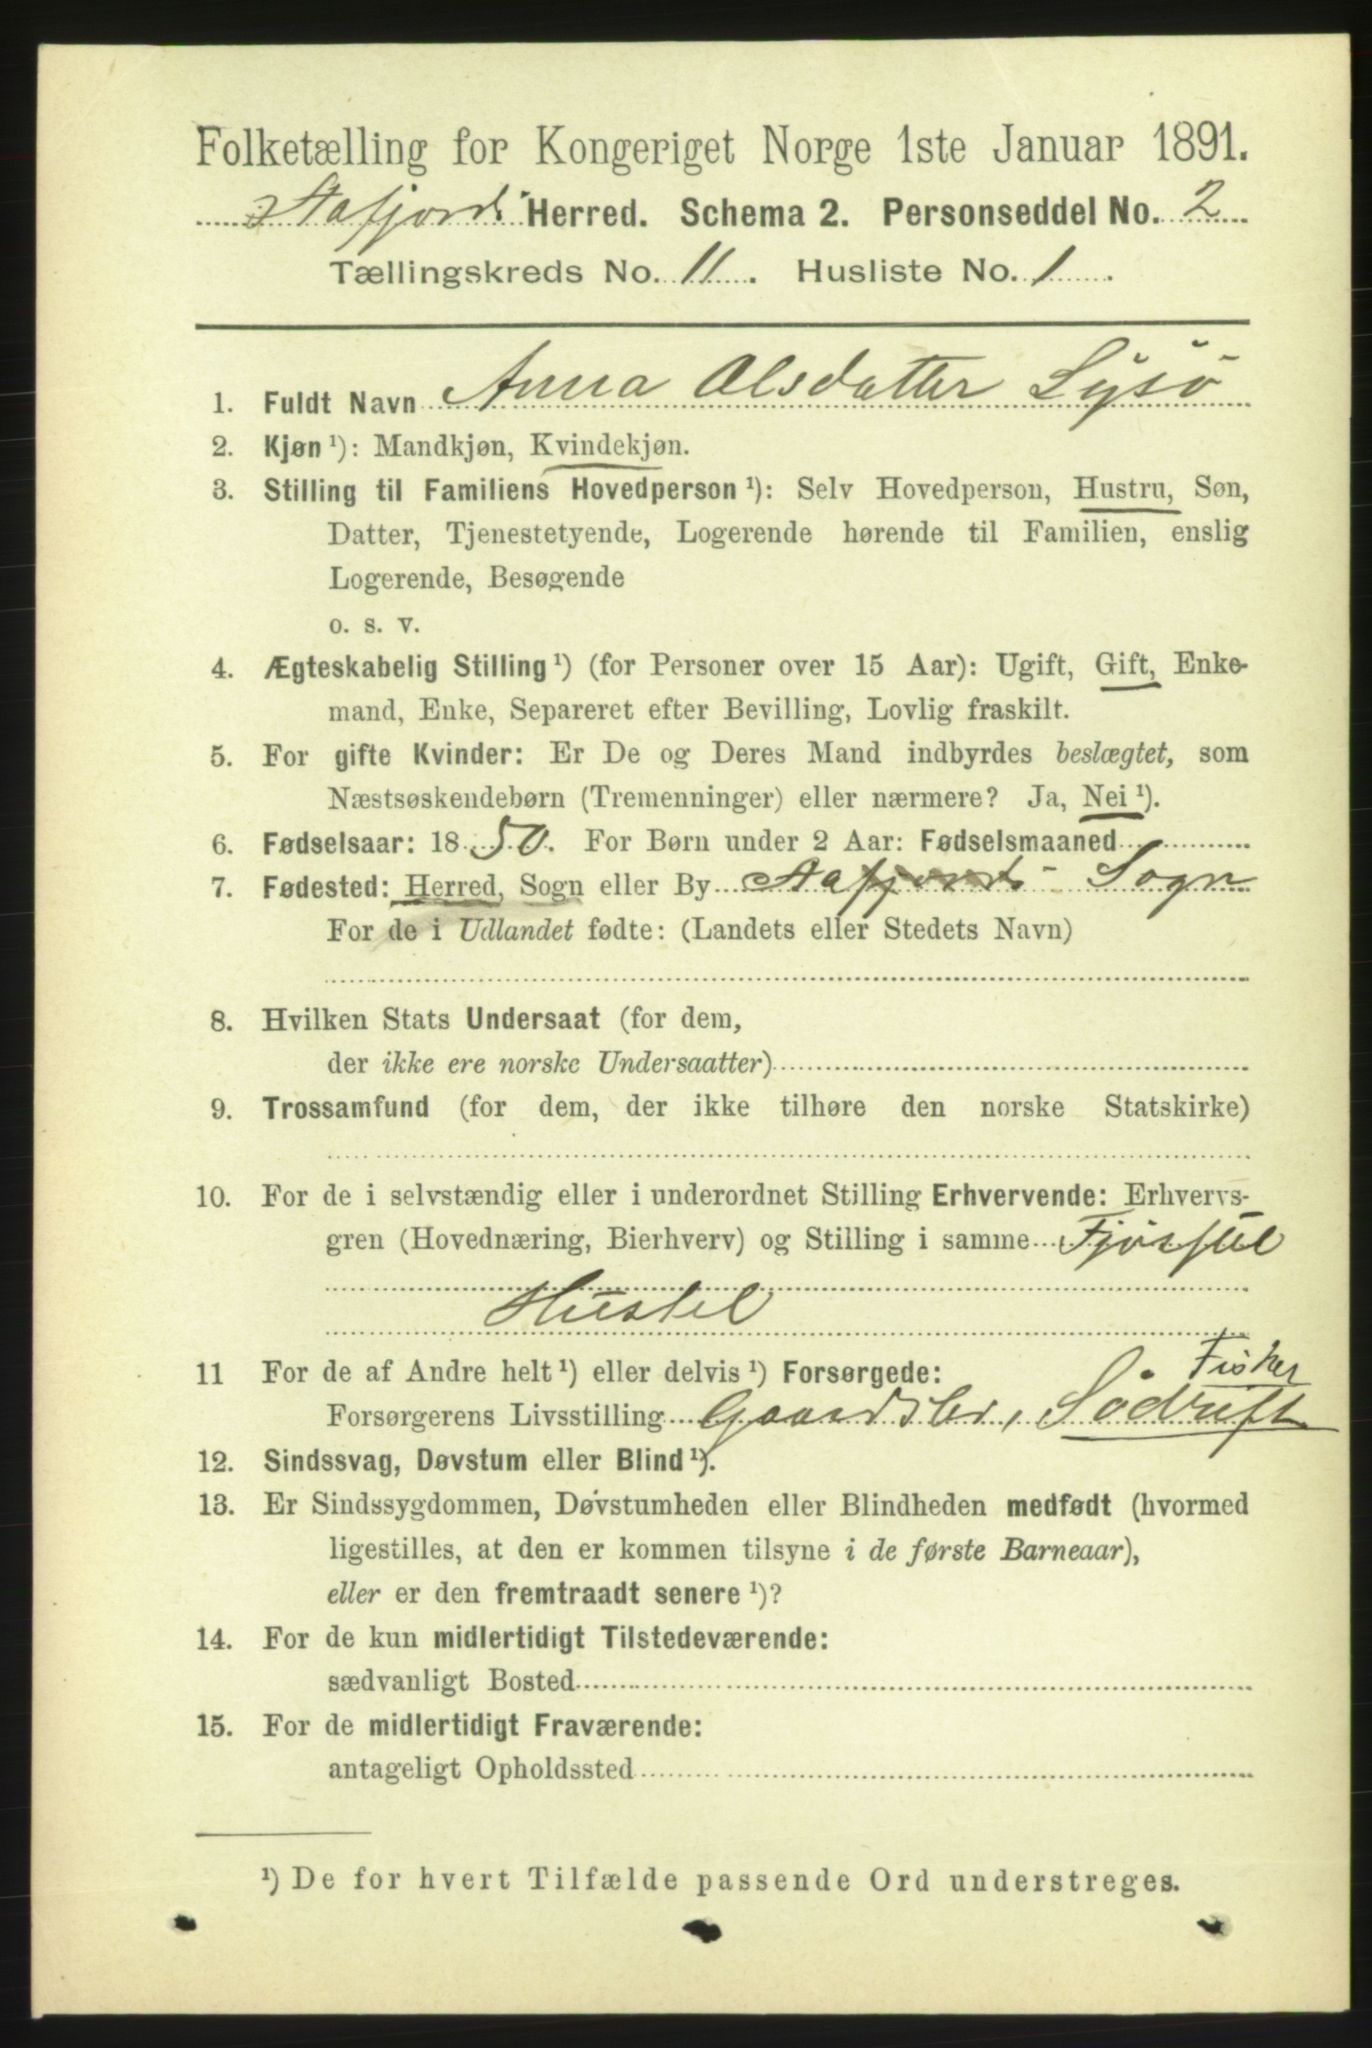 Folketælling for Kongeriget Norge 1ste Januar 1891.
Aafjords Herred. Schema 2. Personseddel No. 2
Tællingskreds No. 11. Husliste No. 1.
1. Fuldt Navn Anna Olsdatter Lysö
2. Kjøn ¹): Mandkjøn, Kvindekjøn.
3. Stilling til Familiens Hovedperson ¹): Selv Hovedperson, Hustru, Søn,
Datter, Tjenestetyende, Logerende hørende til Familien, enslig
Logerende, Besøgende
o. s. v.
4. Ægteskabelig Stilling ¹) (for Personer over 15 Aar): Ugift, Gift, Enke-
mand, Enke, Separeret efter Bevilling, Lovlig fraskilt.
5. For gifte Kvinder: Er De og Deres Mand indbyrdes beslægtet, som
Næstsøskendebørn (Tremenninger) eller nærmere? Ja, Nei ¹).
6. Fødselsaar: 1850. For Børn under 2 Aar: Fødselsmaaned
7. Fødested: Herred, Sogn eller By Aafjords Sogn
For de i Udlandet fødte: (Landets eller Stedets Navn)
8. Hvilken Stats Undersaat (for dem,
der ikke ere norske Undersaatter)
9. Trossamfund (for dem, der ikke tilhøre den norske Statskirke)
10. For de i selvstændig eller i underordnet Stilling Erhvervende: Erhvervs-
gren (Hovednæring, Bierhverv) og Stilling i samme Fjösstel
Husstel
11 For de af Andre helt ¹) eller delvis ¹) Forsørgede: Fisker
Forsørgerens Livsstilling Gaardsbr, Södrift
12. Sindssvag, Døvstum eller Blind ¹).
13. Er Sindssygdommen, Døvstumheden eller Blindheden medfødt (hvormed
ligestilles, at den er kommen tilsyne i de første Barneaar),
eller er den fremtraadt senere ¹)?
14. For de kun midlertidigt Tilstedeværende:
sædvanligt Bosted
15. For de midlertidigt Fraværende:
antageligt Opholdssted
¹) De for hvert Tilfælde passende Ord understreges.